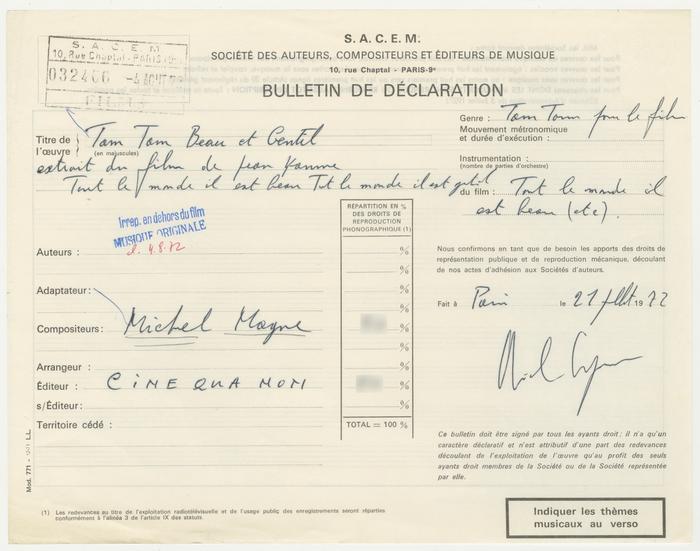 S. A. C. E. M.
SOCIÉTÉ DES AUTEURS, COMPOSITEURS ET ÉDITEURS DE MUSIQUE
10, rue Chaptal - PARIS-9e
BULLETIN DE DÉCLARATION
S. A. C. E. M.
10, Rue Chaptal - PARIS-9e
032466 -4 AOUT
FILMS
Titre de l'œuvre (en majuscules) Tam Tam Beau et Gentil
extrait du film de Jean Yanne
Tout le monde il est beau Tt le monde il est gentil
Genre : Tam Tam pour le film
Mouvement métronomique
et durée d'exécution :
Instrumentation :
(nombre de parties d'orchestre)
du film : Tout le monde il
est beau (etc).
Irrep. en dehors du film
MUSIQUE ORIGINALE
4.8.72
RÉPARTITION EN %
DES DROITS DE
REPRODUCTION
PHONOGRAPHIQUE (1)
Auteurs : %
%
Adaptateur : %
%
Compositeurs : Michel Magne %
%
Arrangeur : %
Éditeur : CINE QUA NON %
s/Éditeur : %
Territoire cédé : TOTAL = 100 %
Nous confirmons en tant que de besoin les apports des droits de
représentation publique et de reproduction mécanique, découlant
de nos actes d'adhésion aux Sociétés d'auteurs.
Fait à Paris le 21 Juillet 1972
Ce bulletin doit être signé par tous les ayants droit ; il n'a qu'un
caractère déclaratif et n'est attributif d'une part des redevances
découlant de l'exploitation de l'œuvre qu'au profit des seuls
ayants droit membres de la Société ou de la Société représentée
par elle.
Mod. 771 - LL
(1) Les redevances au titre de l'exploitation radiotélévisuelle et de l'usage public des enregistrements seront réparties
conformément à l'alinéa 3 de l'article IX des statuts.
Indiquer les thèmes
musicaux au verso